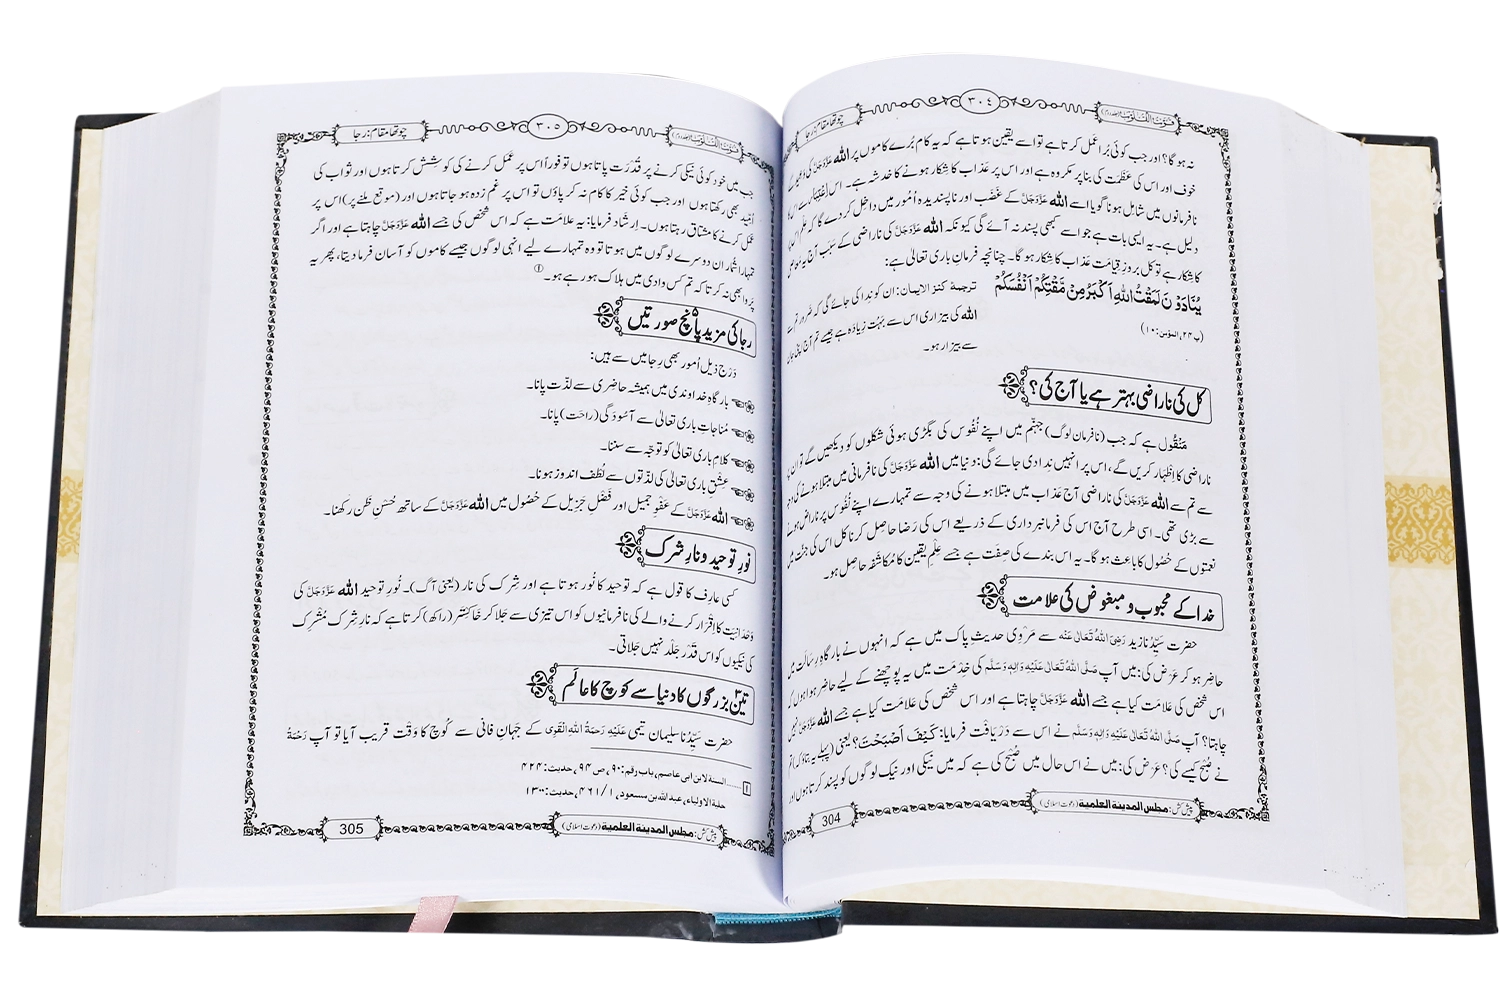 قوت القلوب (جلد دوم)
٣٠٤
چوتھا مقام: رجا
نہ ہو گا؟ اور جب کوئی بُرا عمل کرتا ہے تو اسے یقین ہوتا ہے کہ یہ کام بُرے کاموں پر الله عَزَّوَجَلَّ کی
خوف اور اس کی عَظَمت کی بنا پر مکروہ ہے اور اس پر عذاب کا شکار ہونے کا خدشہ ہے۔ اس
نافرمانوں میں شامل ہونا گویا اسے الله عَزَّوَجَلَّ کے غَضَب اور ناپسندیدہ اُمور میں داخل کر دے گا کہ علم
دلیل ہے۔ یہ ایسی بات ہے جو اسے کبھی پسند نہ آئے گی کیونکہ الله عَزَّوَجَلَّ کی ناراضی کے سبب آج یہ
کا شکار ہے تو کل بروزِ قیامت عذاب کا شکار ہو گا۔ چنانچہ فرمانِ باری تعالیٰ ہے:
یُنَادَوْنَ لَمَقْتُ اللهِ اَكْبَرُ مِنْ مَّقْتِكُمْ اَنْفُسَكُمْ
ترجمۂ کنز الایمان: ان کو ندا کی جائے گی کہ ضرور تم سے
(پ ۲۴، المؤمن: ۱۰)
الله کی بیزاری اس سے بہت زیادہ ہے جیسے تم آج اپنی جان
سے بیزار ہو۔
کل کی ناراضی بہتر ہے یا آج کی؟
منقول ہے کہ جب (نافرمان لوگ) جہنّم میں اپنے نُفُوس کی بگڑی ہوئی شکلوں کو دیکھیں گے تو ان پر
ناراضی کا اِظہار کریں گے، اس پر انہیں ندا دی جائے گی: دنیا میں الله عَزَّوَجَلَّ کی نافرمانی میں مبتلا ہونے کی وجہ
سے تم سے الله عَزَّوَجَلَّ کی ناراضی آج عذاب میں مبتلا ہونے کی وجہ سے تمہارے اپنے نُفُوس پر ناراض ہونے
سے بڑی تھی۔ اسی طرح آج اس کی فرمانبرداری کے ذریعے اس کی رَضا حاصل کرنا کل اس کی جنّت میں
نعمتوں کے حُصُول کا باعث ہو گا۔ یہ اس بندے کی صِفَت ہے جسے علمِ یقین کا مُکاشَفہ حاصل ہو۔
خدا کے محبوب و مبغوض کی علامت
حضرت سیّدُنا زید رَضِیَ اللهُ تَعَالٰی عَنْہ سے مَروی حدیثِ پاک میں ہے کہ انہوں نے بارگاہِ رِسالَت میں
حاضر ہو کر عَرَض کی: میں آپ صَلَّی اللهُ تَعَالٰی عَلَیْہِ وَاٰلِہٖ وَسَلَّم کی خِدمَت میں یہ پوچھنے کے لیے حاضر ہوا ہوں کہ
اس شخص کی علامت کیا ہے جسے الله عَزَّوَجَلَّ چاہتا ہے اور اس شخص کی علامت کیا ہے جسے الله عَزَّوَجَلَّ نہیں
چاہتا؟ آپ صَلَّی اللهُ تَعَالٰی عَلَیْہِ وَاٰلِہٖ وَسَلَّم نے اس سے دریافت فرمایا: كَيْفَ اَصْبَحْتَ؟ یعنی (پہلے یہ بتاؤ کہ) تم
نے صُبح کیسے کی؟ عرض کی: میں نے اس حال میں صُبح کی ہے کہ میں نیکی اور نیک لوگوں کو پسند کرتا ہوں اور
پیش کش: مجلس المدینة العلمیة (دعوت اسلامی)
304
قوت القلوب (جلد دوم)
٣٠٥
چوتھا مقام: رجا
جب میں خود کوئی نیکی کرنے پر قُدرَت پاتا ہوں تو فوراً اس پر عَمَل کرنے کی کوشش کرتا ہوں اور ثواب کی
اُمِّید بھی رکھتا ہوں اور جب کوئی خیر کا کام نہ کر پاؤں تو اس پر غم زدہ ہو جاتا ہوں اور (موقع ملنے پر) اس پر
عَمَل کرنے کا مشتاق رہتا ہوں۔ اِرشاد فرمایا: یہ علامت ہے کہ اس شخص کی جسے الله عَزَّوَجَلَّ چاہتا ہے اور اگر
تمہارا شُمار ان دوسرے لوگوں میں ہوتا تو وہ تمہارے لیے انہی لوگوں جیسے کاموں کو آسان فرما دیتا، پھر یہ
پروا بھی نہ کرتا کہ تم کس وادی میں ہلاک ہو رہے ہو۔①
رجا کی مزید پانچ صورتیں
دَرج ذیل اُمور بھی رِجا میں سے ہیں:
بارگاہِ خداوندی میں ہمیشہ حاضری سے لذّت پانا۔
مُناجاتِ باری تعالیٰ سے آسُودَگی (راحت) پانا۔
کلامِ باری تعالیٰ کو توجّہ سے سننا۔
عِشقِ باری تعالیٰ کی لذّتوں سے لُطف اندوز ہونا۔
الله عَزَّوَجَلَّ کے عَفْوِ جمیل اور فَضْلِ جَزِیل کے حُصُول میں الله عَزَّوَجَلَّ کے ساتھ حُسنِ ظن رکھنا۔
نورِ توحید و نارِ شرک
کسی عارِف کا قول ہے کہ توحید کا نُور ہوتا ہے اور شِرک کی نار (یعنی آگ)۔ نُورِ توحید الله عَزَّوَجَلَّ کی
وَحدانِیّت کا اِقرار کرنے والے کی نافرمانیوں کو اس تیزی سے جلا کر خاکِستَر (راکھ) کرتا ہے کہ نارِ شِرک مُشرِک
کی نیکیوں کو اس قَدَر جَلد نہیں جَلاتی۔
تین بزرگوں کا دنیا سے کوچ کا عالَم
حضرت سیّدُنا سلیمان تیمی عَلَیْہِ رَحمَۃُ اللهِ الْقَوِی کے جہانِ فانی سے کُوچ کا وَقت قریب آیا تو آپ رَحمَۃُ
۱......السنة لابن ابی عاصم، باب رقم: ۹۰، ص ۹۴، حدیث: ۴۲۴
حلیة الاولیاء، عبد الله بن مسعود، ۱/ ۴۶۱، حدیث: ۱۳۰۰
پیش کش: مجلس المدینة العلمیة (دعوت اسلامی)
305